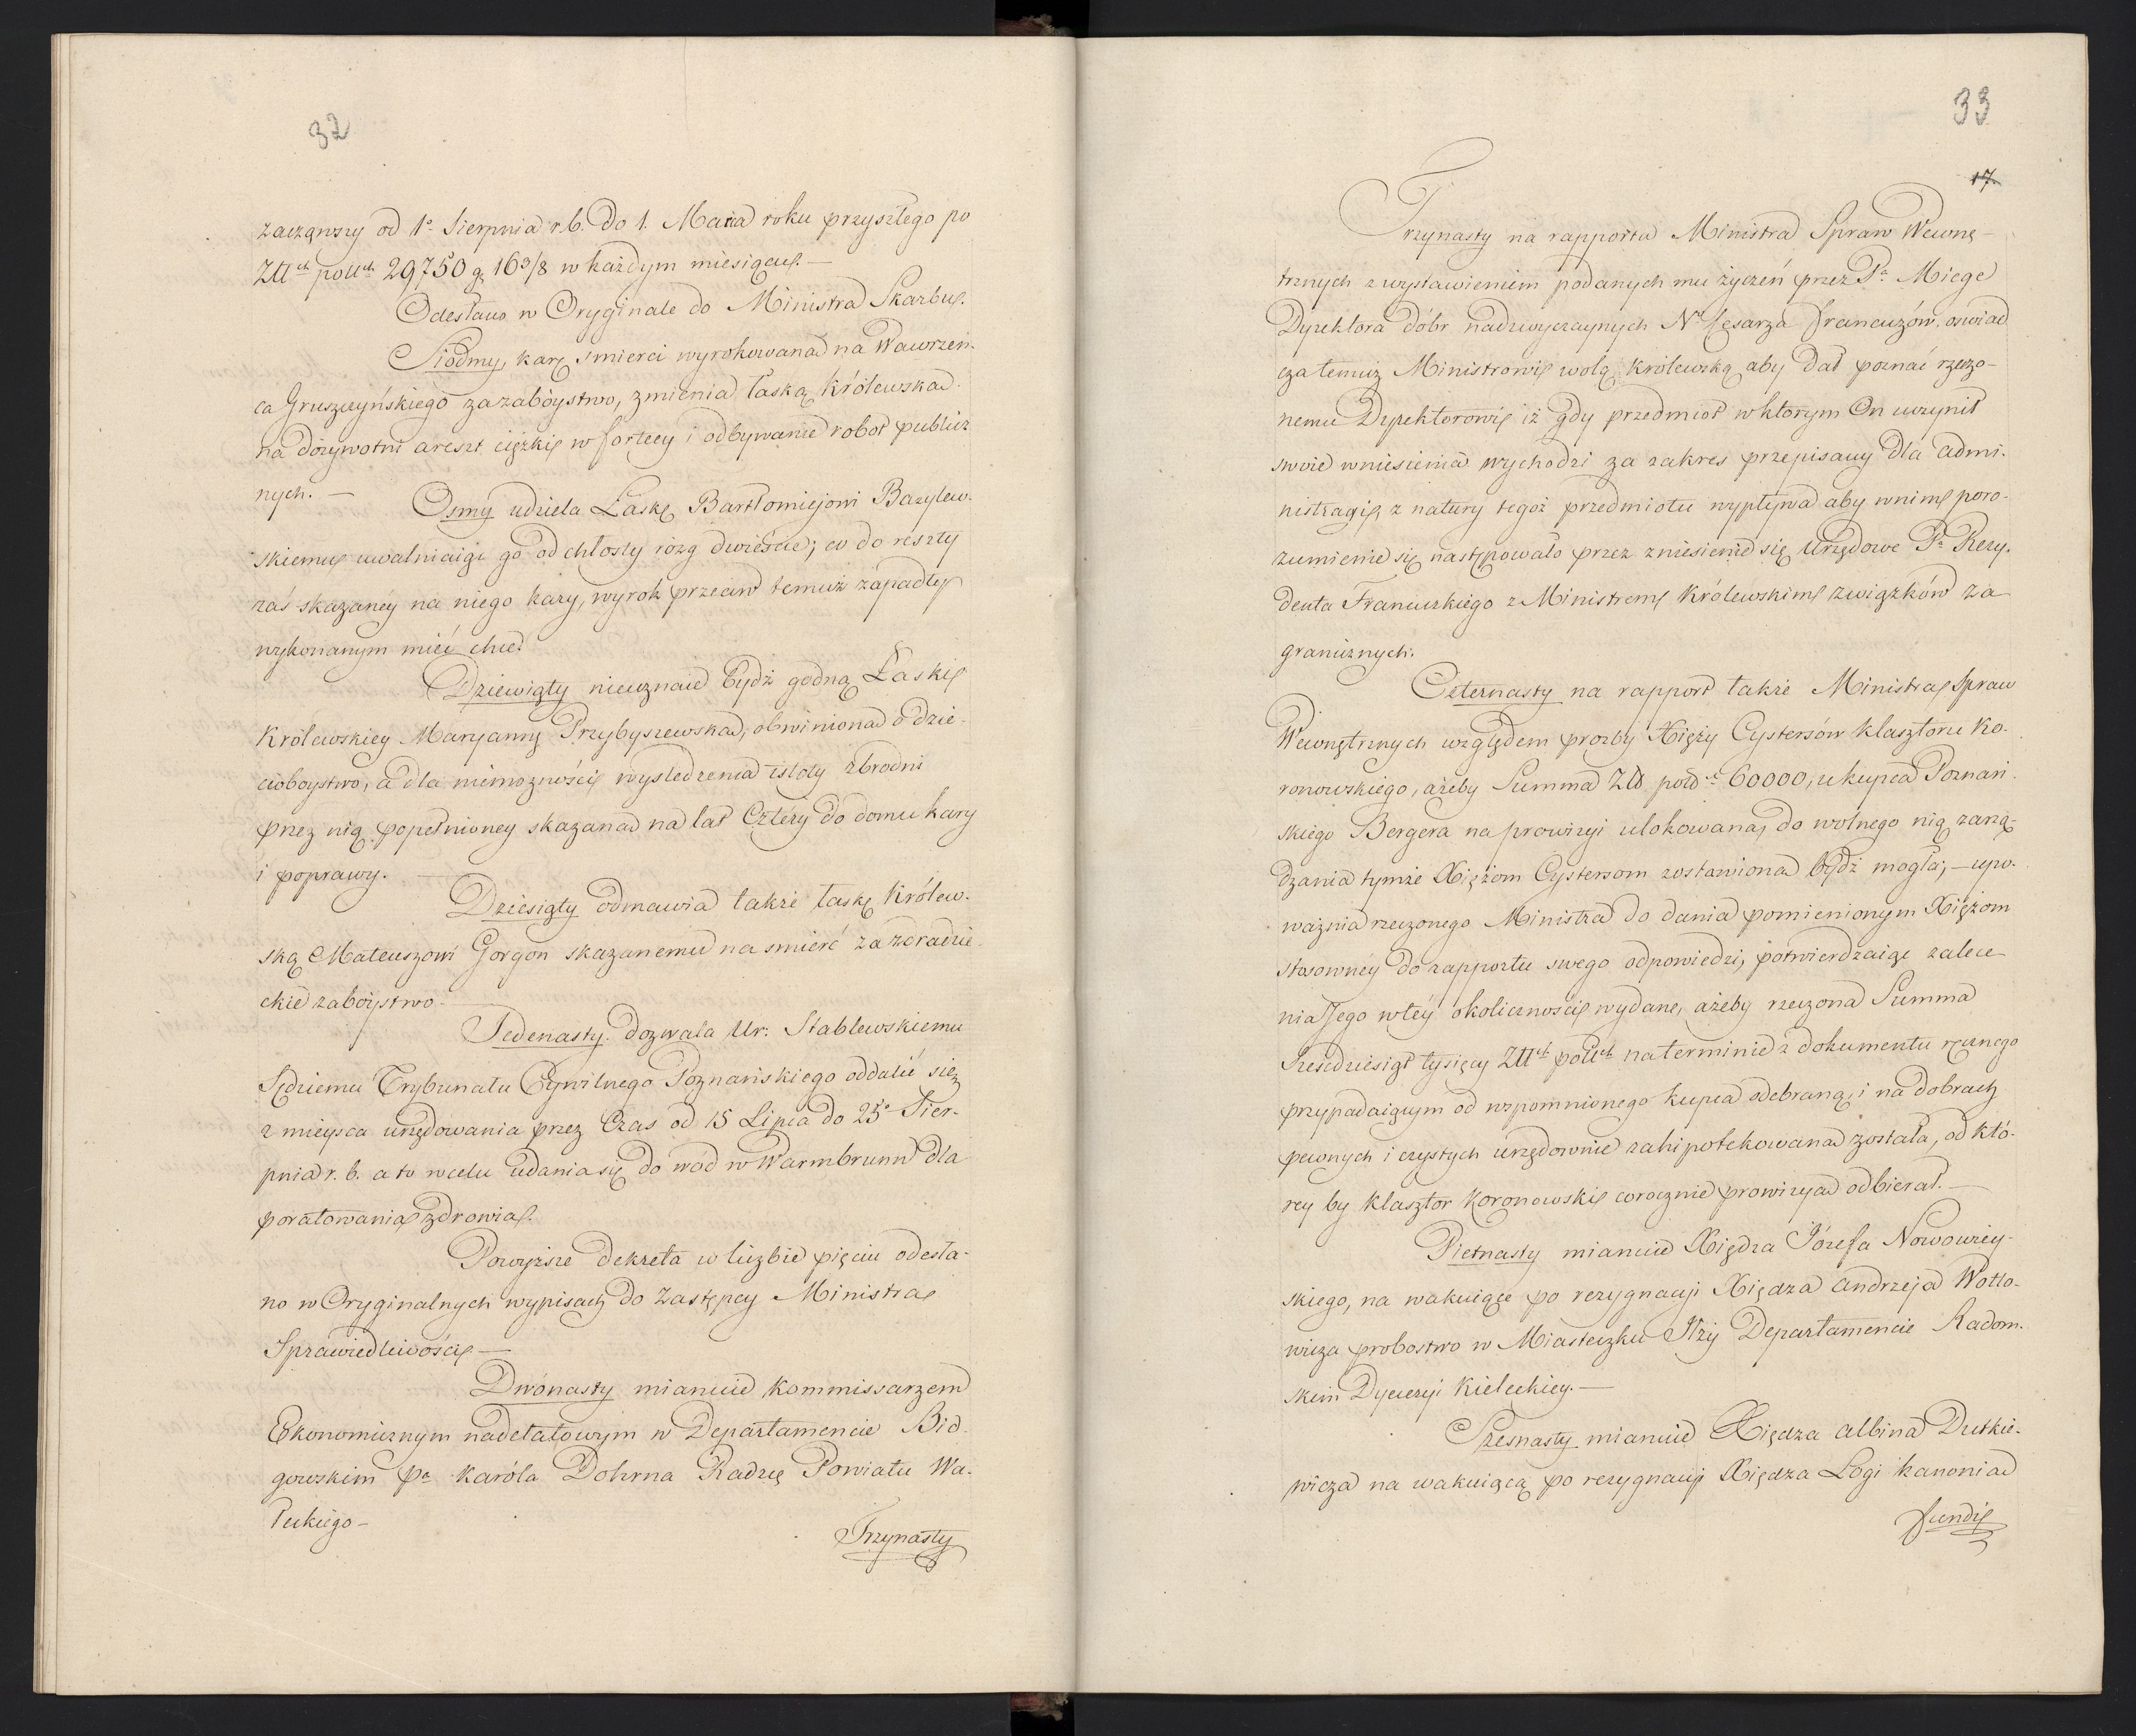 32
zacząwszy od 1o Sierpnia r.b. do 1. Maia roku przyszłego po
Złłch pollch 29750 g. 16 3/8 w każdym miesiącu. —
Odesłano w Oryginale do Ministra Skarbu.
Siodmy, karę smierci wyrokowaną na Wawrzeń-
ca Gruszczyńskiego za zabóystwo, zmienia łaską Królewską
na dożywotni areszt ciężki w fortecy i odbywanie robot publicz
nych. —
Osmy udziela Łaskę Bartłomiejowi Bazylew-
skiemu uwalniaiąc go od chłosty rózg dwieście; co do reszty
zaś skazanéy na niego kary, wyrok przeciw temuż zapadły
wykonanym mieć chce.
Dziewiąty nieuznaie bydź godną Łaski
Królewskiey Maryannę Przybyszewską, obwinioną o dzie-
ciobóystwo, a dla niemożności wyśledzenia istoty zbrodni
przez nią popełnioney skazaną na lat Cztéry do domu kary
i poprawy. —
Dziesiąty odmawia także łaskę Królew-
ską Mateuszowi Gorgon skazanemu na smierć za zdradzie-
ckie zabóystwo. —
Jedenasty. dozwala Ur: Stablewskiemu
Sędziemu Trybunału Cywilnego Poznańskiego oddalić się
z mieysca urzędowania przez Czas od 15 Lipca do 25o Sier-
pnia r. b. a to w celu udania się do wód w Warmbrunn dla
poratowania zdrowia.
Powyższe dekreta w liczbie pięciu odesła-
no w Oryginalnych wypisach do Zastępcy Ministra
Sprawiedliwości —
Dwónasty mianuie Kommissarzem
Ekonomicznym nadetatowym w Departamencie Bid-
gowskim Pa Karóla Dohrna Radzcę Powiatu Wa-
łeckiego —
Trzynasty
33
17.
Trzynasty na rapport Ministra Spraw Wewnę-
trznych z wystawieniem podanych mu życzeń przez Pa Miege
Dyrektora dóbr nadzwyczaynych No Cesarza Francuzów, oswiad
cza temuż Ministrowi wolą Królewską aby dał poznać rzeczo-
nemu Dyrektorowi iż gdy przedmiot w którym On uczynił
swoie wniesienia wychodzi za zakres przepisany dla admi-
nistracyi, z natury tegoż przedmiotu wypływa aby w nim poro-
zumienie się następowało przez zniesienie się Urzędowe Pa Rezy-
denta Francuzkiego z Ministrem Królewskim związków za-
granicznych.
Czternasty na rapport także Ministra Spraw
Wewnętrznych względem prozby Xięży Cystersów Klasztoru Ko-
ronowskiego, ażeby Summa Złł polłch 60000, u kupca Poznań-
skiego Bergera na prowizyi ulokowana, do wolnego nią zarzą-
dzania tymże Xiężom Cystersom zostawiona bydź mogła; — upo-
ważnia rzeczonego Ministra do dania pomienionym Xiężom
stosownéy do rapportu swego odpowiedzi, potwierdzaiąc zalece-
nia Jego w téy okoliczności wydane, ażeby rzeczona Summa
Sześćdziesiąt tysięcy Złłch pollch na terminie z dokumentu ręcznego
przypadaiącym od wspomnionego kupca odebraną, i na dobrach
pewnych i czystych urzędownie zahipotekowaną została, od któ-
rey by Klasztor Koronowski corocznie prowizyą odbierał. —
Pietnasty mianuie Xiędza Józefa Nowowiey-
skiego, na wakuiące po rezygnacyi Xiędza Andrzeja Wotło-
wicza probostwo w Miasteczku Iłży Departamencie Radom-
skim Dyecezyi Kieleckiey. —
Szesnasty mianuie Xiędza Albina Dutkie-
wicza na wakuiącą po rezygnacyi Xiędza Logi kanonią
Fundi